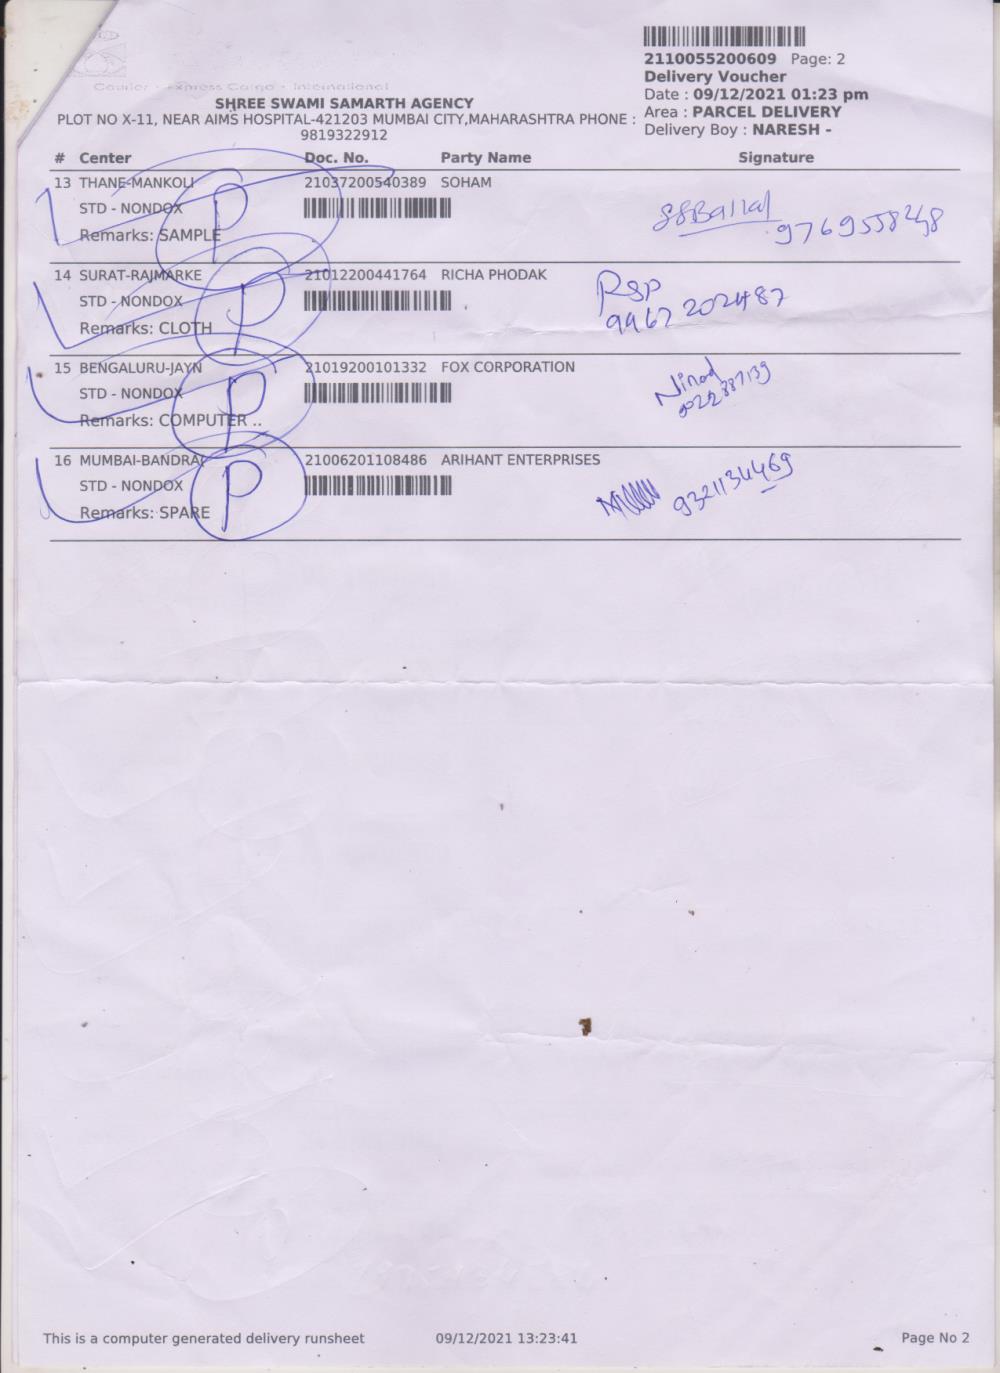 Courier - Express Cargo - International
2110055200609 Page: 2
Delivery Voucher
Date : 09/12/2021 01:23 pm
Area : PARCEL DELIVERY
Delivery Boy : NARESH -
SHREE SWAMI SAMARTH AGENCY
PLOT NO X-11, NEAR AIMS HOSPITAL-421203 MUMBAI CITY,MAHARASHTRA PHONE :
9819322912
# Center Doc. No. Party Name Signature
13 THANE-MANKOLI 21037200540389 SOHAM
STD - NONDOX
Remarks: SAMPLE
P
SSBallal
14 SURAT-RAJMARKE 21012200441764 RICHA PHODAK
STD - NONDOX
Remarks: CLOTH
P
RSP
9967202487
15 BENGALURU-JAYN 21019200101332 FOX CORPORATION
STD - NONDOX
Remarks: COMPUTER ..
P
Ninad
16 MUMBAI-BANDRA( 21006201108486 ARIHANT ENTERPRISES
STD - NONDOX
Remarks: SPARE
P
9321134469
This is a computer generated delivery runsheet 09/12/2021 13:23:41 Page No 2